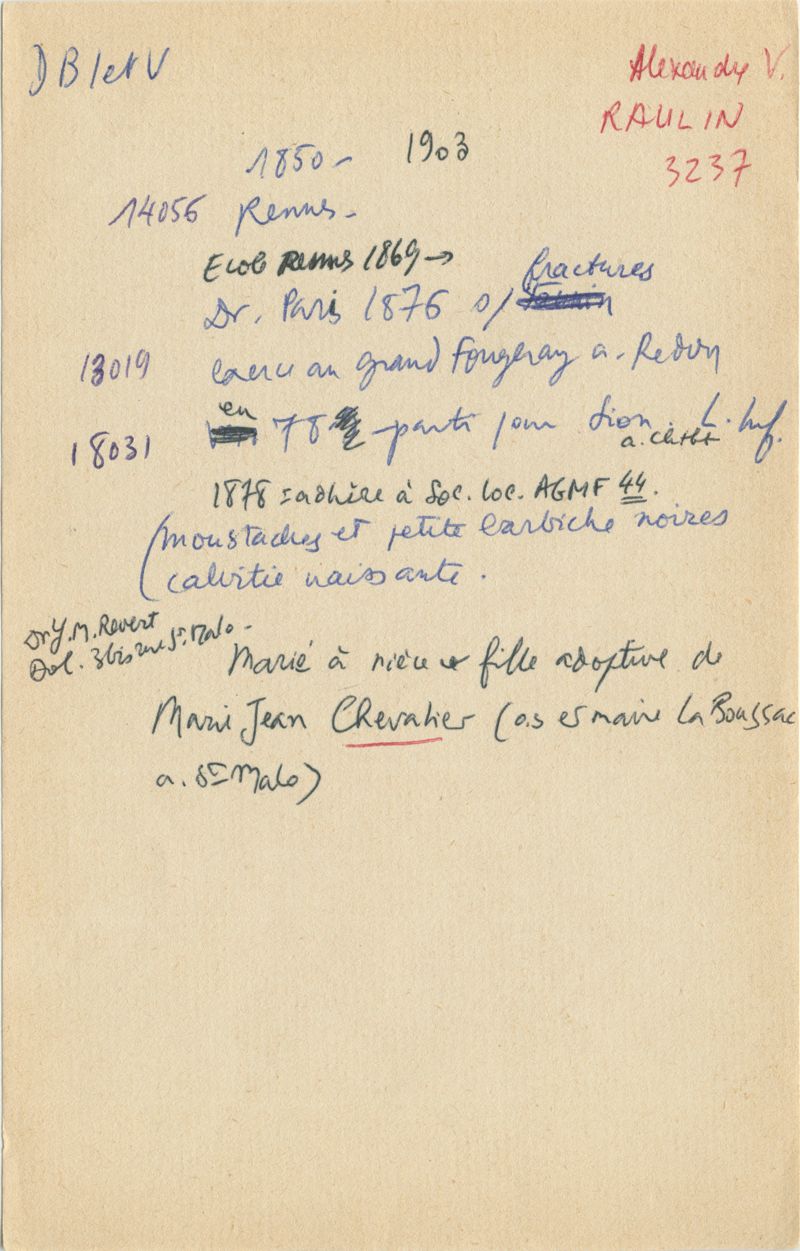 D B I et V
Alexandre V.
RAULIN
3237
1850 - 1903
14056 Rennes -
Ecole Rennes 1869 →
fractures
Dr. Paris 1876 s/
13019 exerce au grand Fougeray a. Redon
18031 en 78 parti pour Sion. L. Inf.
a. chtbt
1878 = adhère à Soc. loc. AGMF 44.
(moustaches et petite barbiche noires
calvitie naissante.
Dr Y. M. Revert
Dol. 3 bis rue St. Malo -
Marié à nièce et fille adoptive de
Marie Jean Chevalier (o.s et maire La Boussac
a. St Malo)